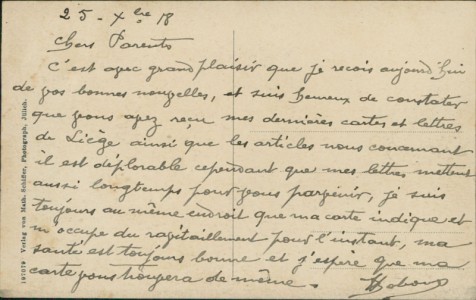 25 - Xbre 18
chers Parents
C'est avec grand plaisir que je recois aujourd'hui
de vos bonnes nouvelles, et suis heureux de constater
que vous avez reçu mes dernières cartes et lettres
de Liège ainsi que les articles nous concernant
il est déplorable cependant que mes lettres mettent
aussi longtemps pour vous parvenir, je suis
toujours au même endroit que ma carte indique et
m'occupe du ravitaillement pour l'instant, ma
santé est toujours bonne et j'espère que ma
carte vous trouvera de même.
197079 Verlag von Math. Schiffer, Photograph, Jülich.